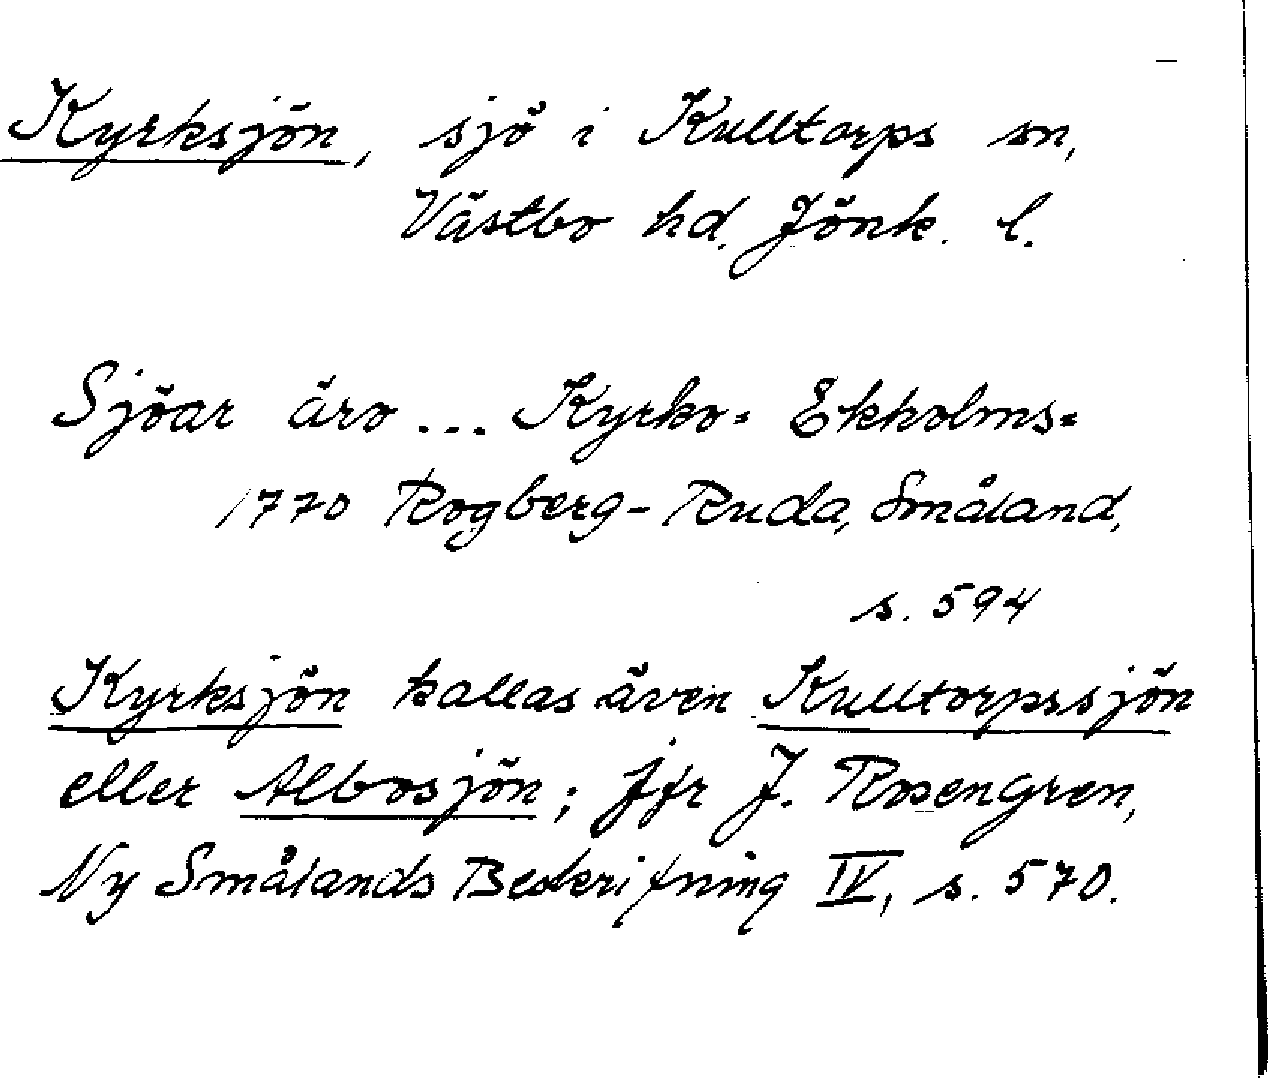 Kyrksjön, sjö i Kulltorps sn,
Västbo hd. Jönk. l.
Sjöar äro ... Kyrko= Ekholms=
1770 Rogberg-Ruda, Småland,
s. 594
Kyrksjön kallas även Kulltorpssjön
eller Albosjön; jfr J. Rosengren,
Ny Smålands Beskrifning IV, s. 570.